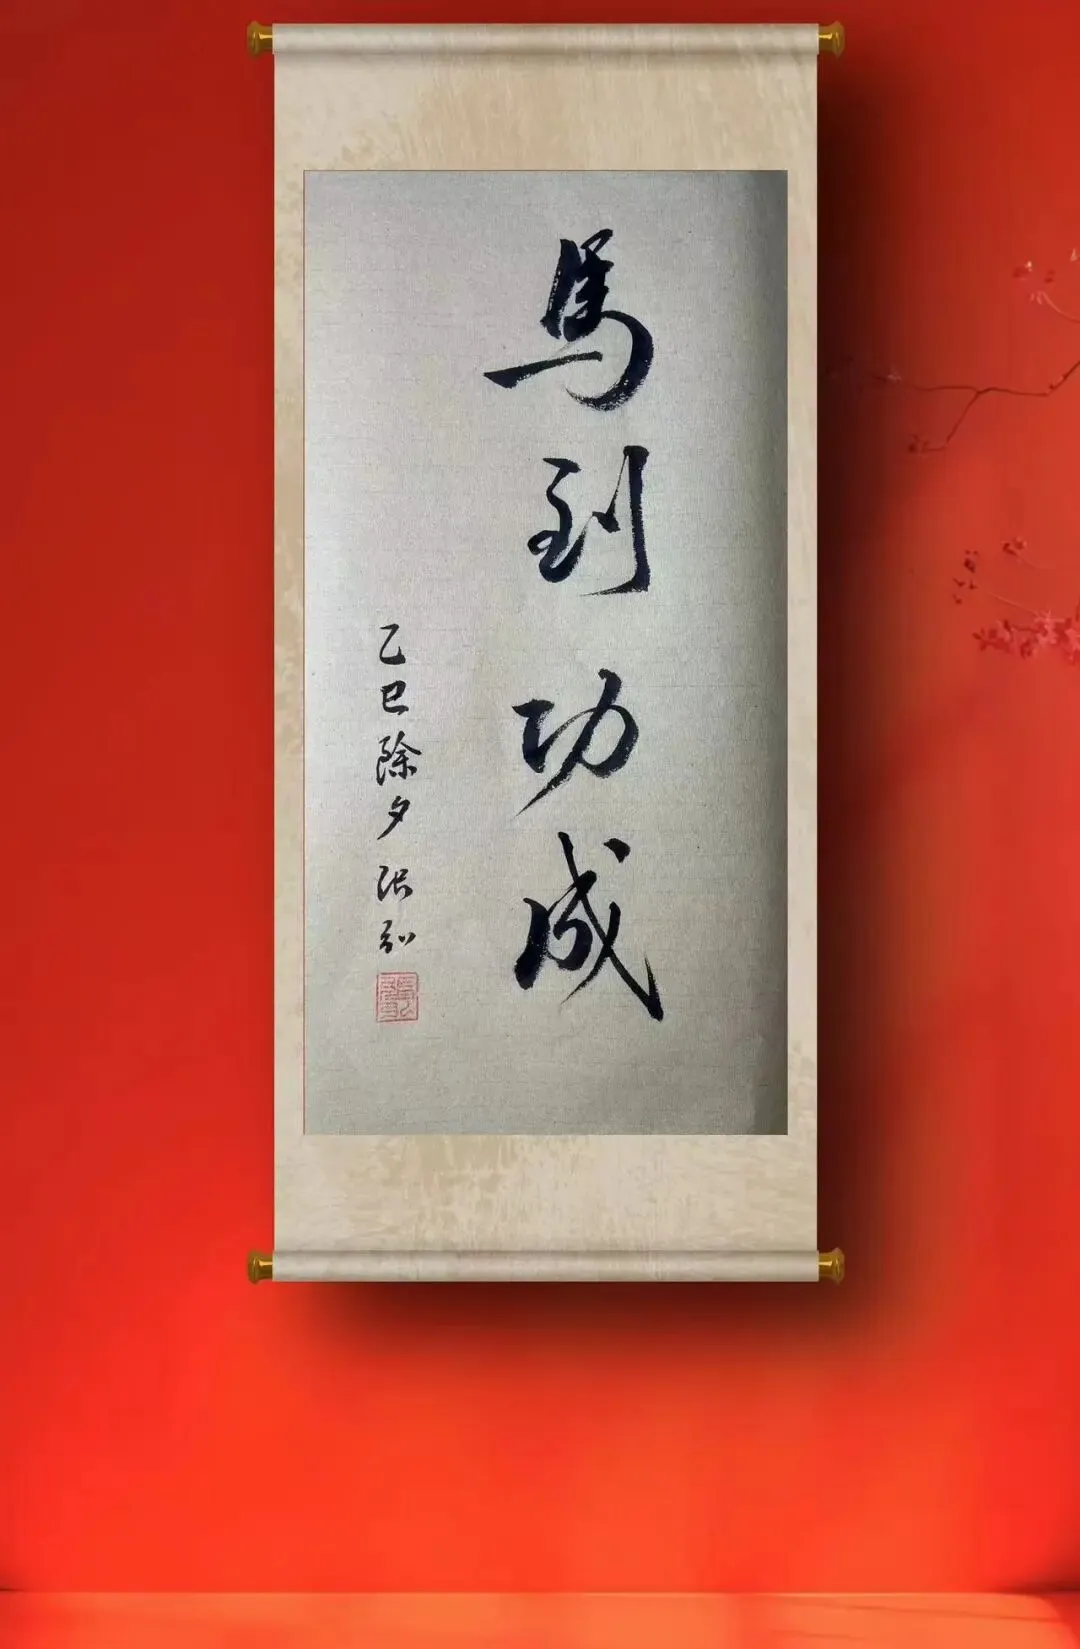 馬到功成
乙巳除夕 張弘